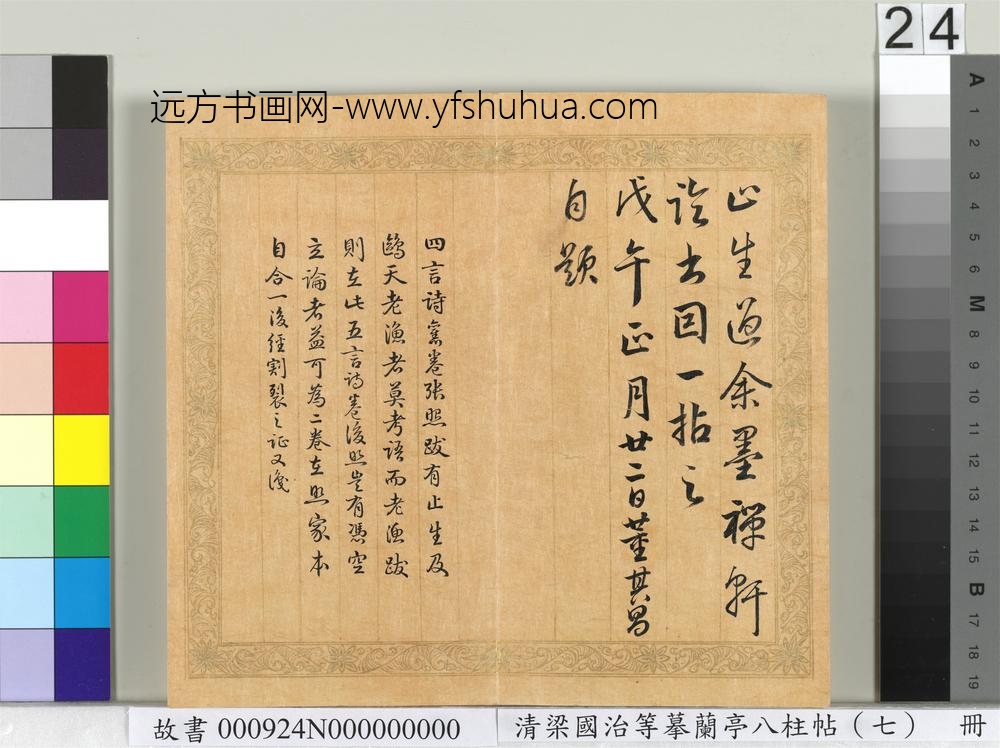 24
远方书画网-www.yfshuhua.com
止生過余墨禪軒
詮出因一拈之
戊午正月廿二日董其昌
自題
四言詩舊卷張照跋有止生及
鷗天老漁者莫考語而老漁跋
則在此五言詩卷後照豈有憑空
立論者益可為二卷在照家本
自合一後經割裂之証又識
A
1
2
3
4
5
6
M
8
9
10
11
12
13
14
15
B
17
18
19
故書 000924N000000000
清梁國治等摹蘭亭八柱帖（七） 冊